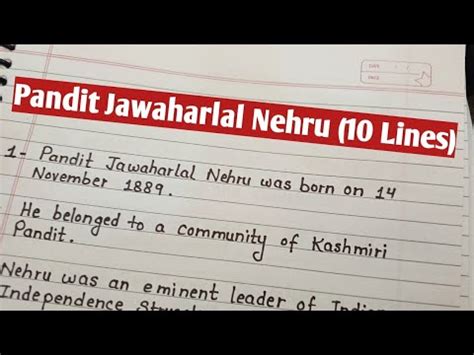 DATE
PAGE
Pandit Jawaharlal Nehru (10 Lines)
1- Pandit Jawaharlal Nehru was born on 14
November 1889.
He belonged to a community of Kashmiri
Pandit.
Nehru was an eminent leader of
Independence